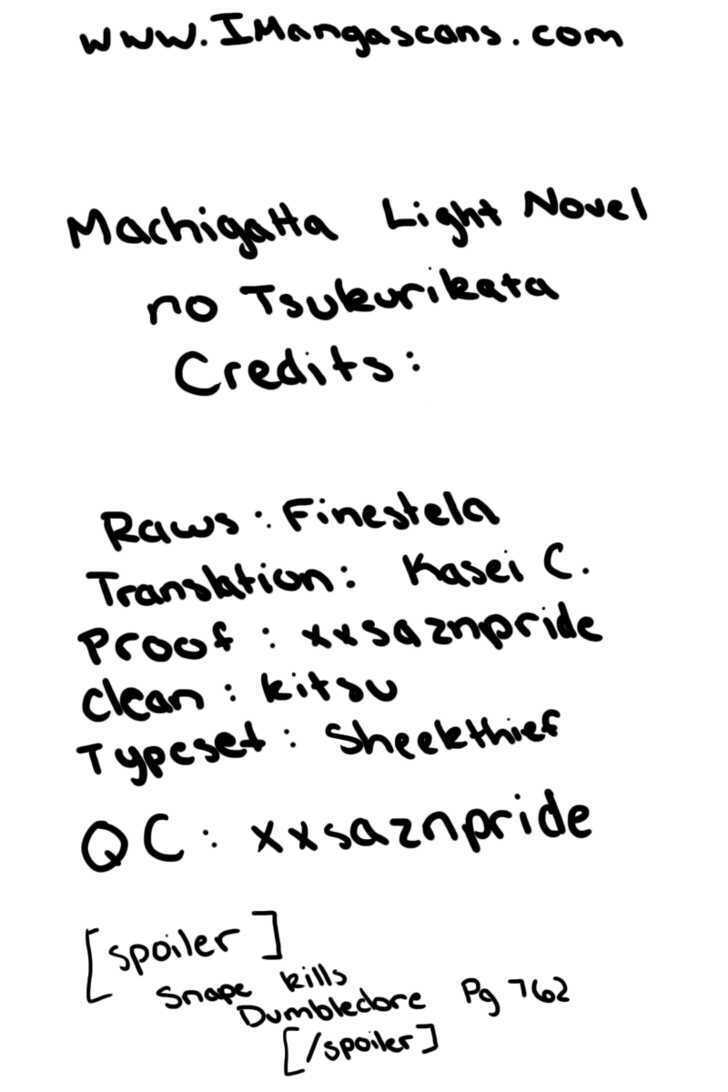 www.IMangascans.com
Machigatta Light Novel
no Tsukurikata
Credits:
Raws: Finestela
Translation: Kasei C.
Proof: xxsaznpride
Clean: kitsu
Typeset: Sheekthief
QC: xxsaznpride
[spoiler]
Snape kills
Dumbledore Pg 762
[/spoiler]